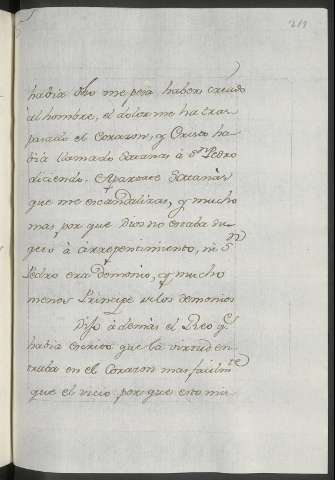 211
havia dho me pesa haber creado
al hombre, el dolor me ha tras
pasado el Corazon, y Cristo ha
bia llamado Satanas à Sn Pedro
diciendo. Apartate Satanàs
que me escandalizas, y mucho
mas, por que Dios no estaba su
geto à arrepentimiento, ni Sn
Pedro era Demonio, y mucho
menos Principe de los demonios
Dijo àdemàs el Reo qe
havia escrito que la virtud en
traba en el Corazon mas facilmte
que el vicio por que esto mis